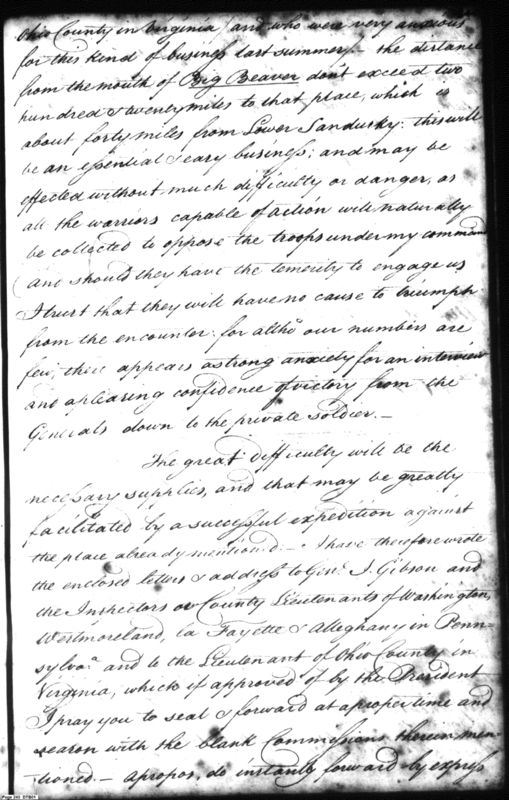 Ohio County in Virginia / and who were very anxious
for this kind of business last summer/- the distance
from the mouth of Big Beaver dont exceed two
hundred & twenty miles to that place, which is
about forty miles from Lower Sandusky: this will
be an essential & easy business; and may be
effected without much difficulty or danger, as
all the warriors capable of action will naturally
be collected to oppose the troops under my command
(and should they have the temerity to engage us
I trust that they will have no cause to triumph
from the encounter: for altho' our numbers are
few, there appears a strong anxiety for an interview
and a pleasing confidence of victory from the
Generals down to the private soldier.—
The great difficulty will be the
necessary supplies, and that may be greatly
facilitated by a successful expedition against
the place already mention:d:— I have therefore wrote
the enclosed letters & address to Genl. J. Gibson and
the Inspectors or County Lieutenants of Washington,
Westmoreland, la Fayette & Alleghany in Penn-
sylva. and to the Lieutenant of Ohio County in
Virginia, which if approved of by the President
I pray you to seal & forward at a proper time and
season with the blank Commissions therein men-
-tioned.— apropos, do instantly forward by express
Page 243 DTB01